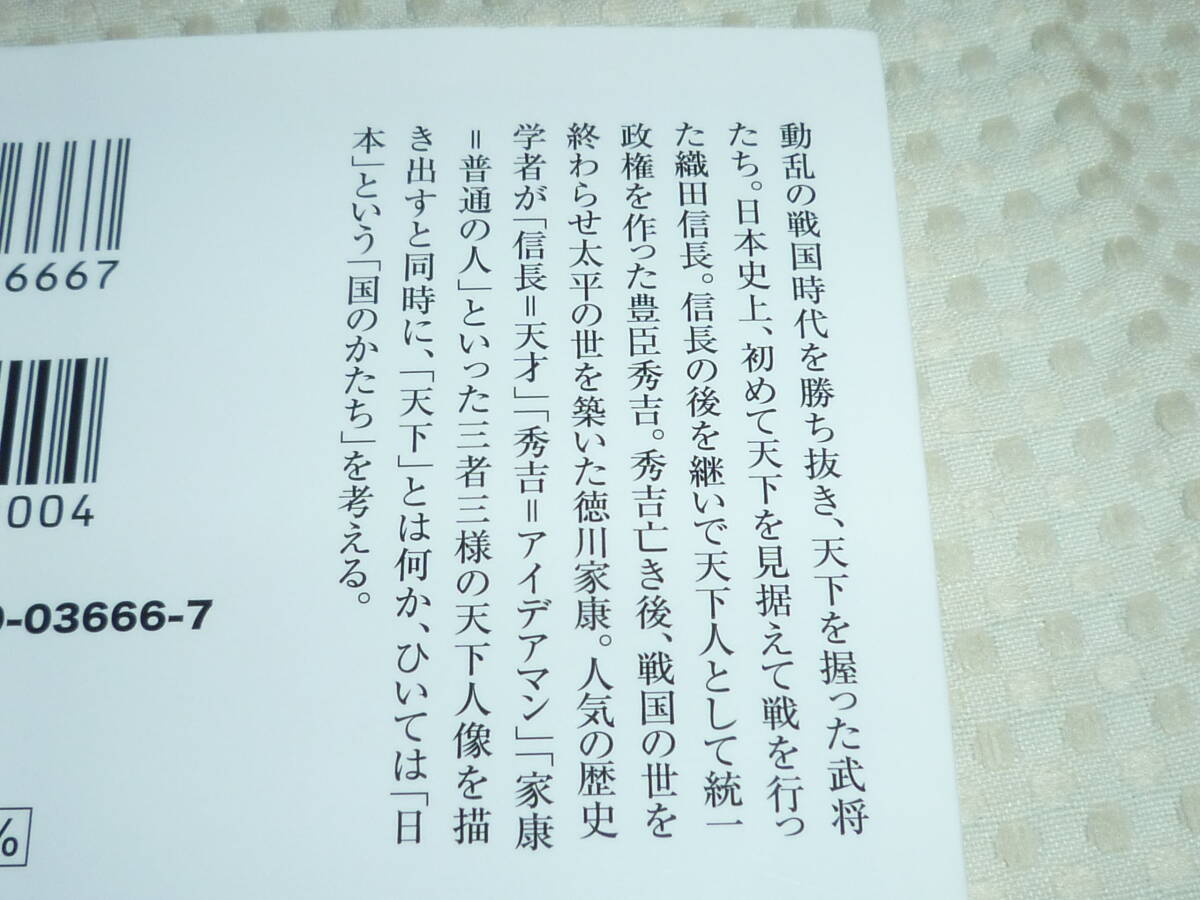 動乱の戦国時代を勝ち抜き、天下を握った武将
たち。日本史上、初めて天下を見据えて戦を行っ
た織田信長。信長の後を継いで天下人として統一
政権を作った豊臣秀吉。秀吉亡き後、戦国の世を
終わらせ太平の世を築いた徳川家康。人気の歴史
学者が「信長＝天才」「秀吉＝アイデアマン」「家康
＝普通の人」といった三者三様の天下人像を描
き出すと同時に、「天下」とは何か、ひいては「日
本」という「国のかたち」を考える。
6667
004
-03666-7
%